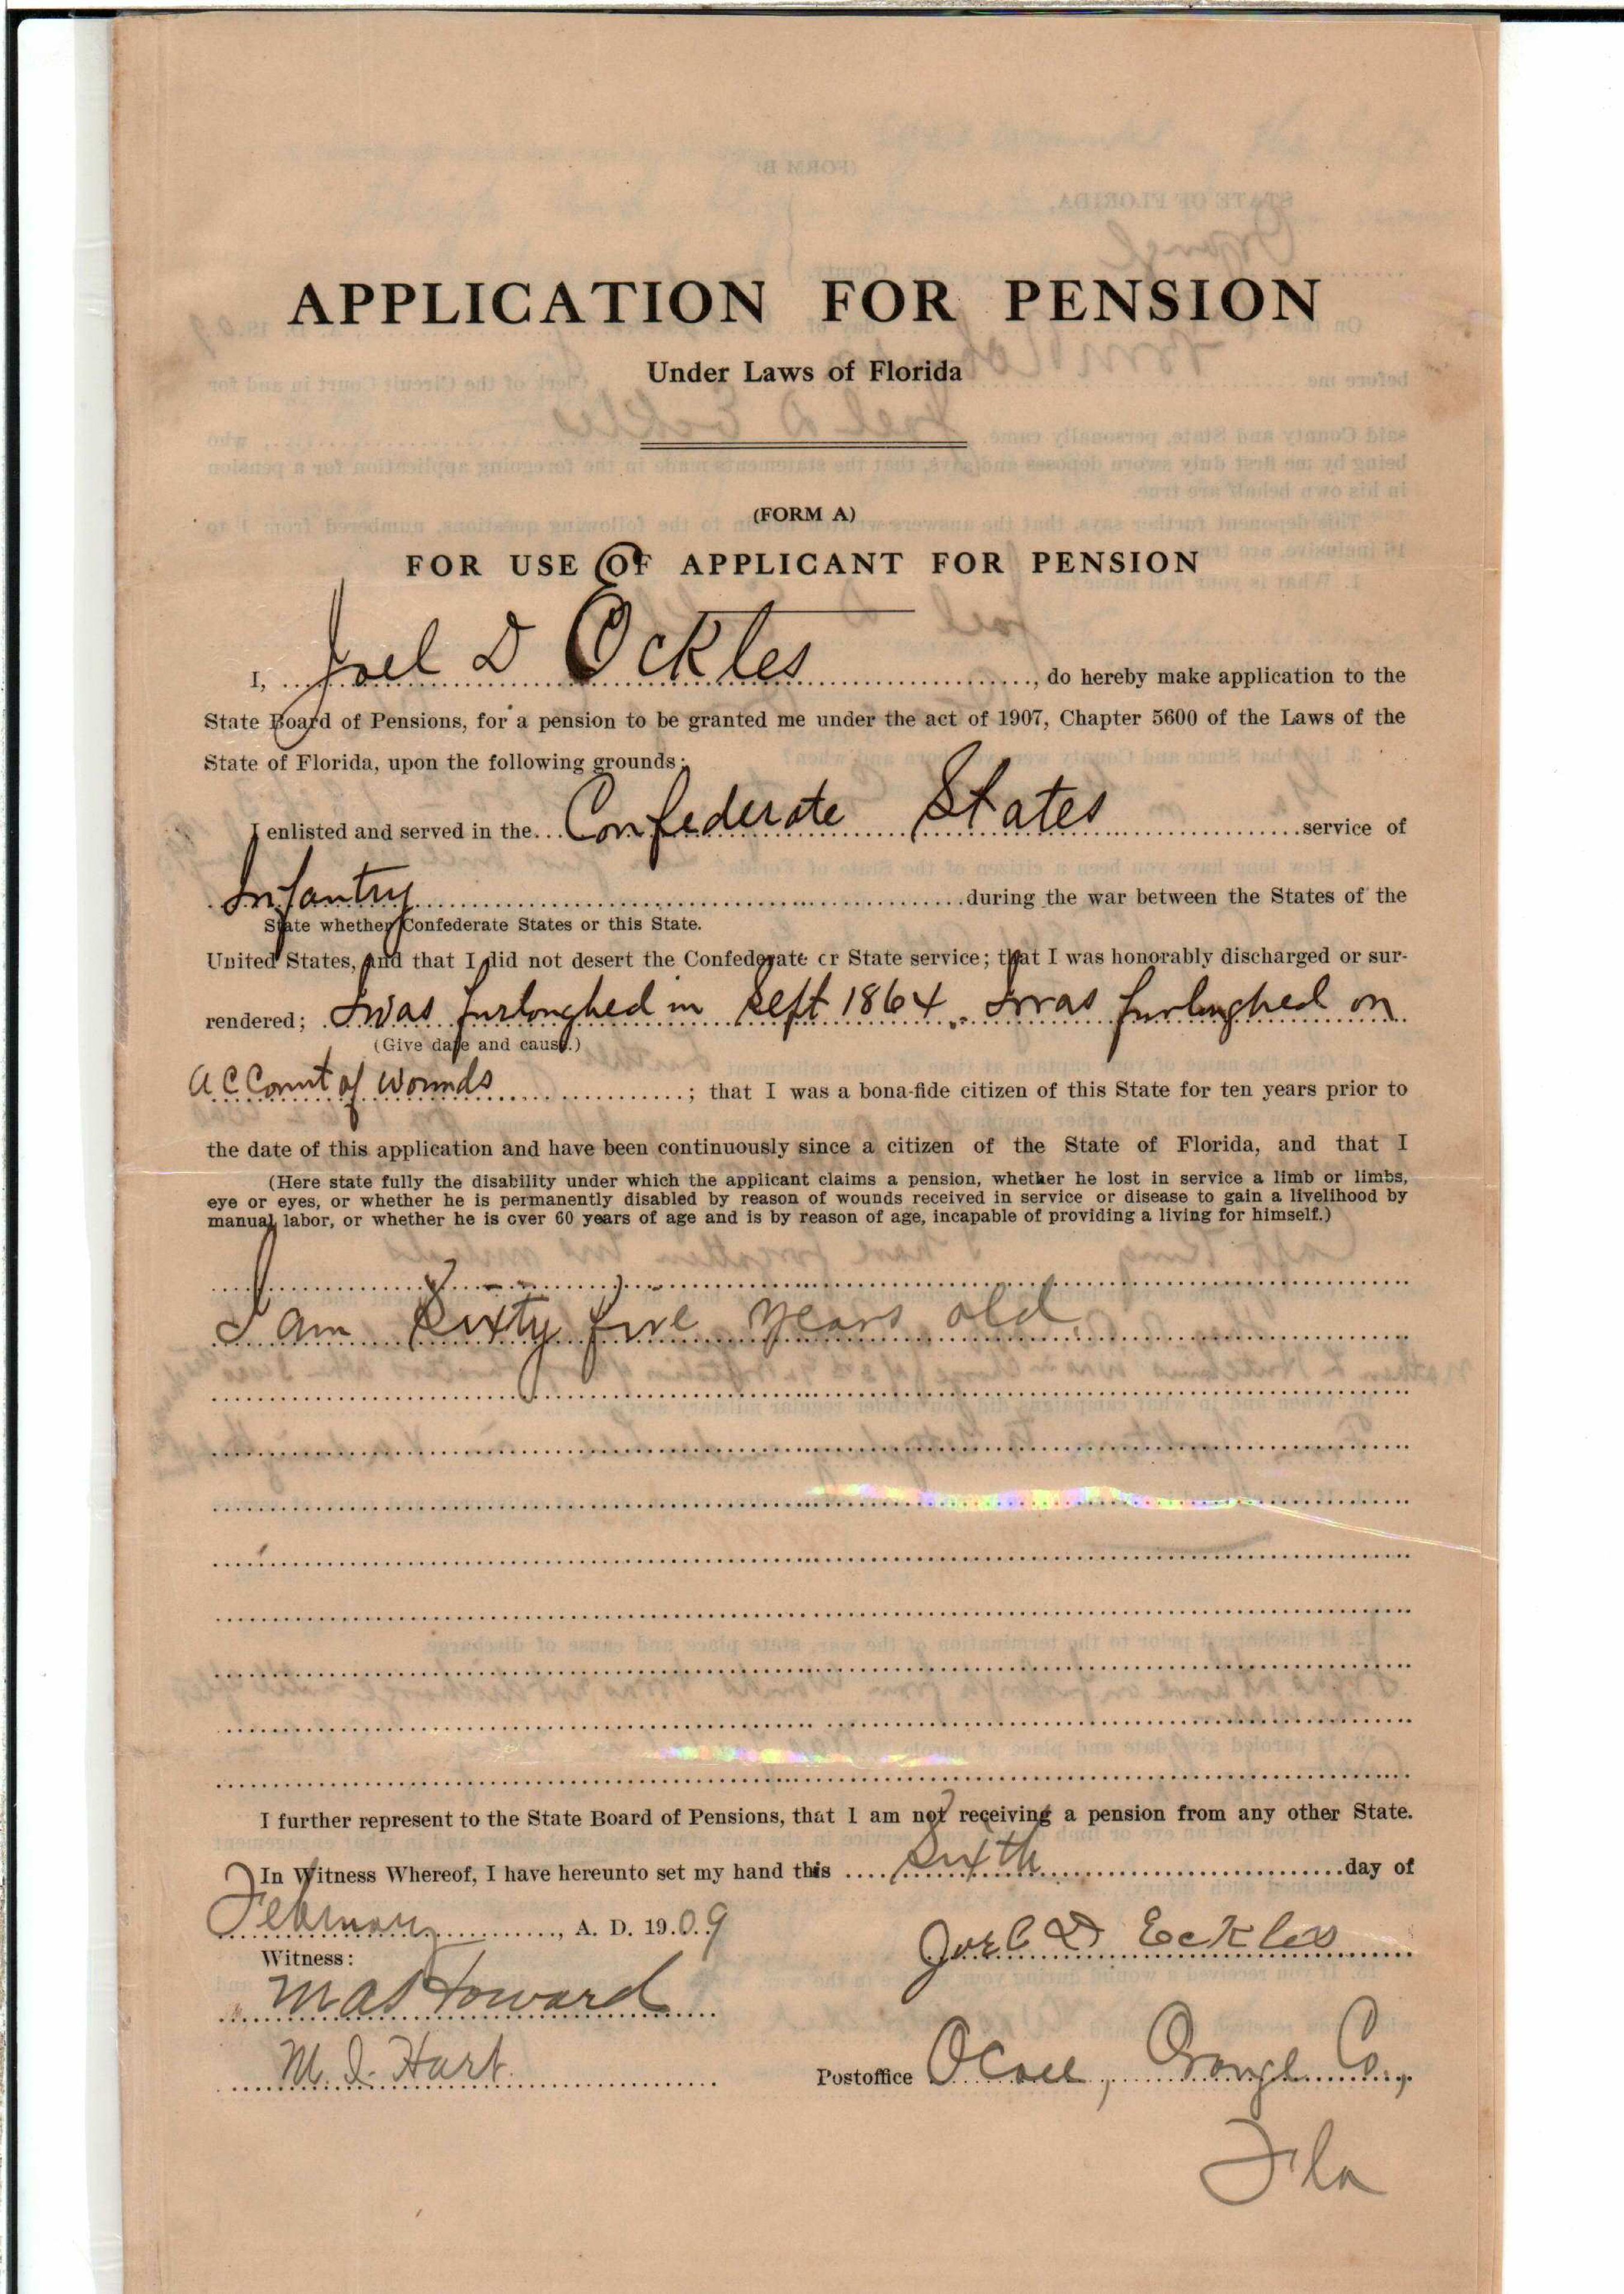 APPLICATION FOR PENSION
Under Laws of Florida
(FORM A)
FOR USE OF APPLICANT FOR PENSION
I, Joel D Eckles, do hereby make application to the
State Board of Pensions, for a pension to be granted me under the act of 1907, Chapter 5600 of the Laws of the
State of Florida, upon the following grounds:
I enlisted and served in the Confederate States service of
Infantry during the war between the States of the
State whether Confederate States or this State.
United States, and that I did not desert the Confederate or State service; that I was honorably discharged or sur-
rendered; I was furloughed in Sept 1864. I was furloughed on
(Give date and cause.)
account of wounds; that I was a bona-fide citizen of this State for ten years prior to
the date of this application and have been continuously since a citizen of the State of Florida, and that I
(Here state fully the disability under which the applicant claims a pension, whether he lost in service a limb or limbs,
eye or eyes, or whether he is permanently disabled by reason of wounds received in service or disease to gain a livelihood by
manual labor, or whether he is over 60 years of age and is by reason of age, incapable of providing a living for himself.)
I am Sixty five years old
I further represent to the State Board of Pensions, that I am not receiving a pension from any other State.
In Witness Whereof, I have hereunto set my hand this Sixth day of
February, A. D. 1909
Joel D Eckles
Witness:
Howard
M. I. Hart.
Postoffice Ocoee, Orange Co.,
Fla